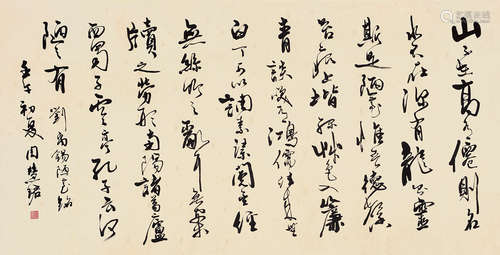 山不在高有僊則名
水不在深有龍則靈
斯是陋室惟吾德馨
苔痕上堦綠艸色入簾
青談笑有鴻儒往來無
白丁可以調素琴閱金經
無絲竹之亂耳無案
牘之勞形南陽諸葛廬
西蜀子雲亭孔子云何
陋之有
劉禹錫陋室銘
壬午初夏周慧珺